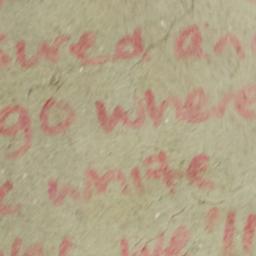 ured an
go where
white
we'll